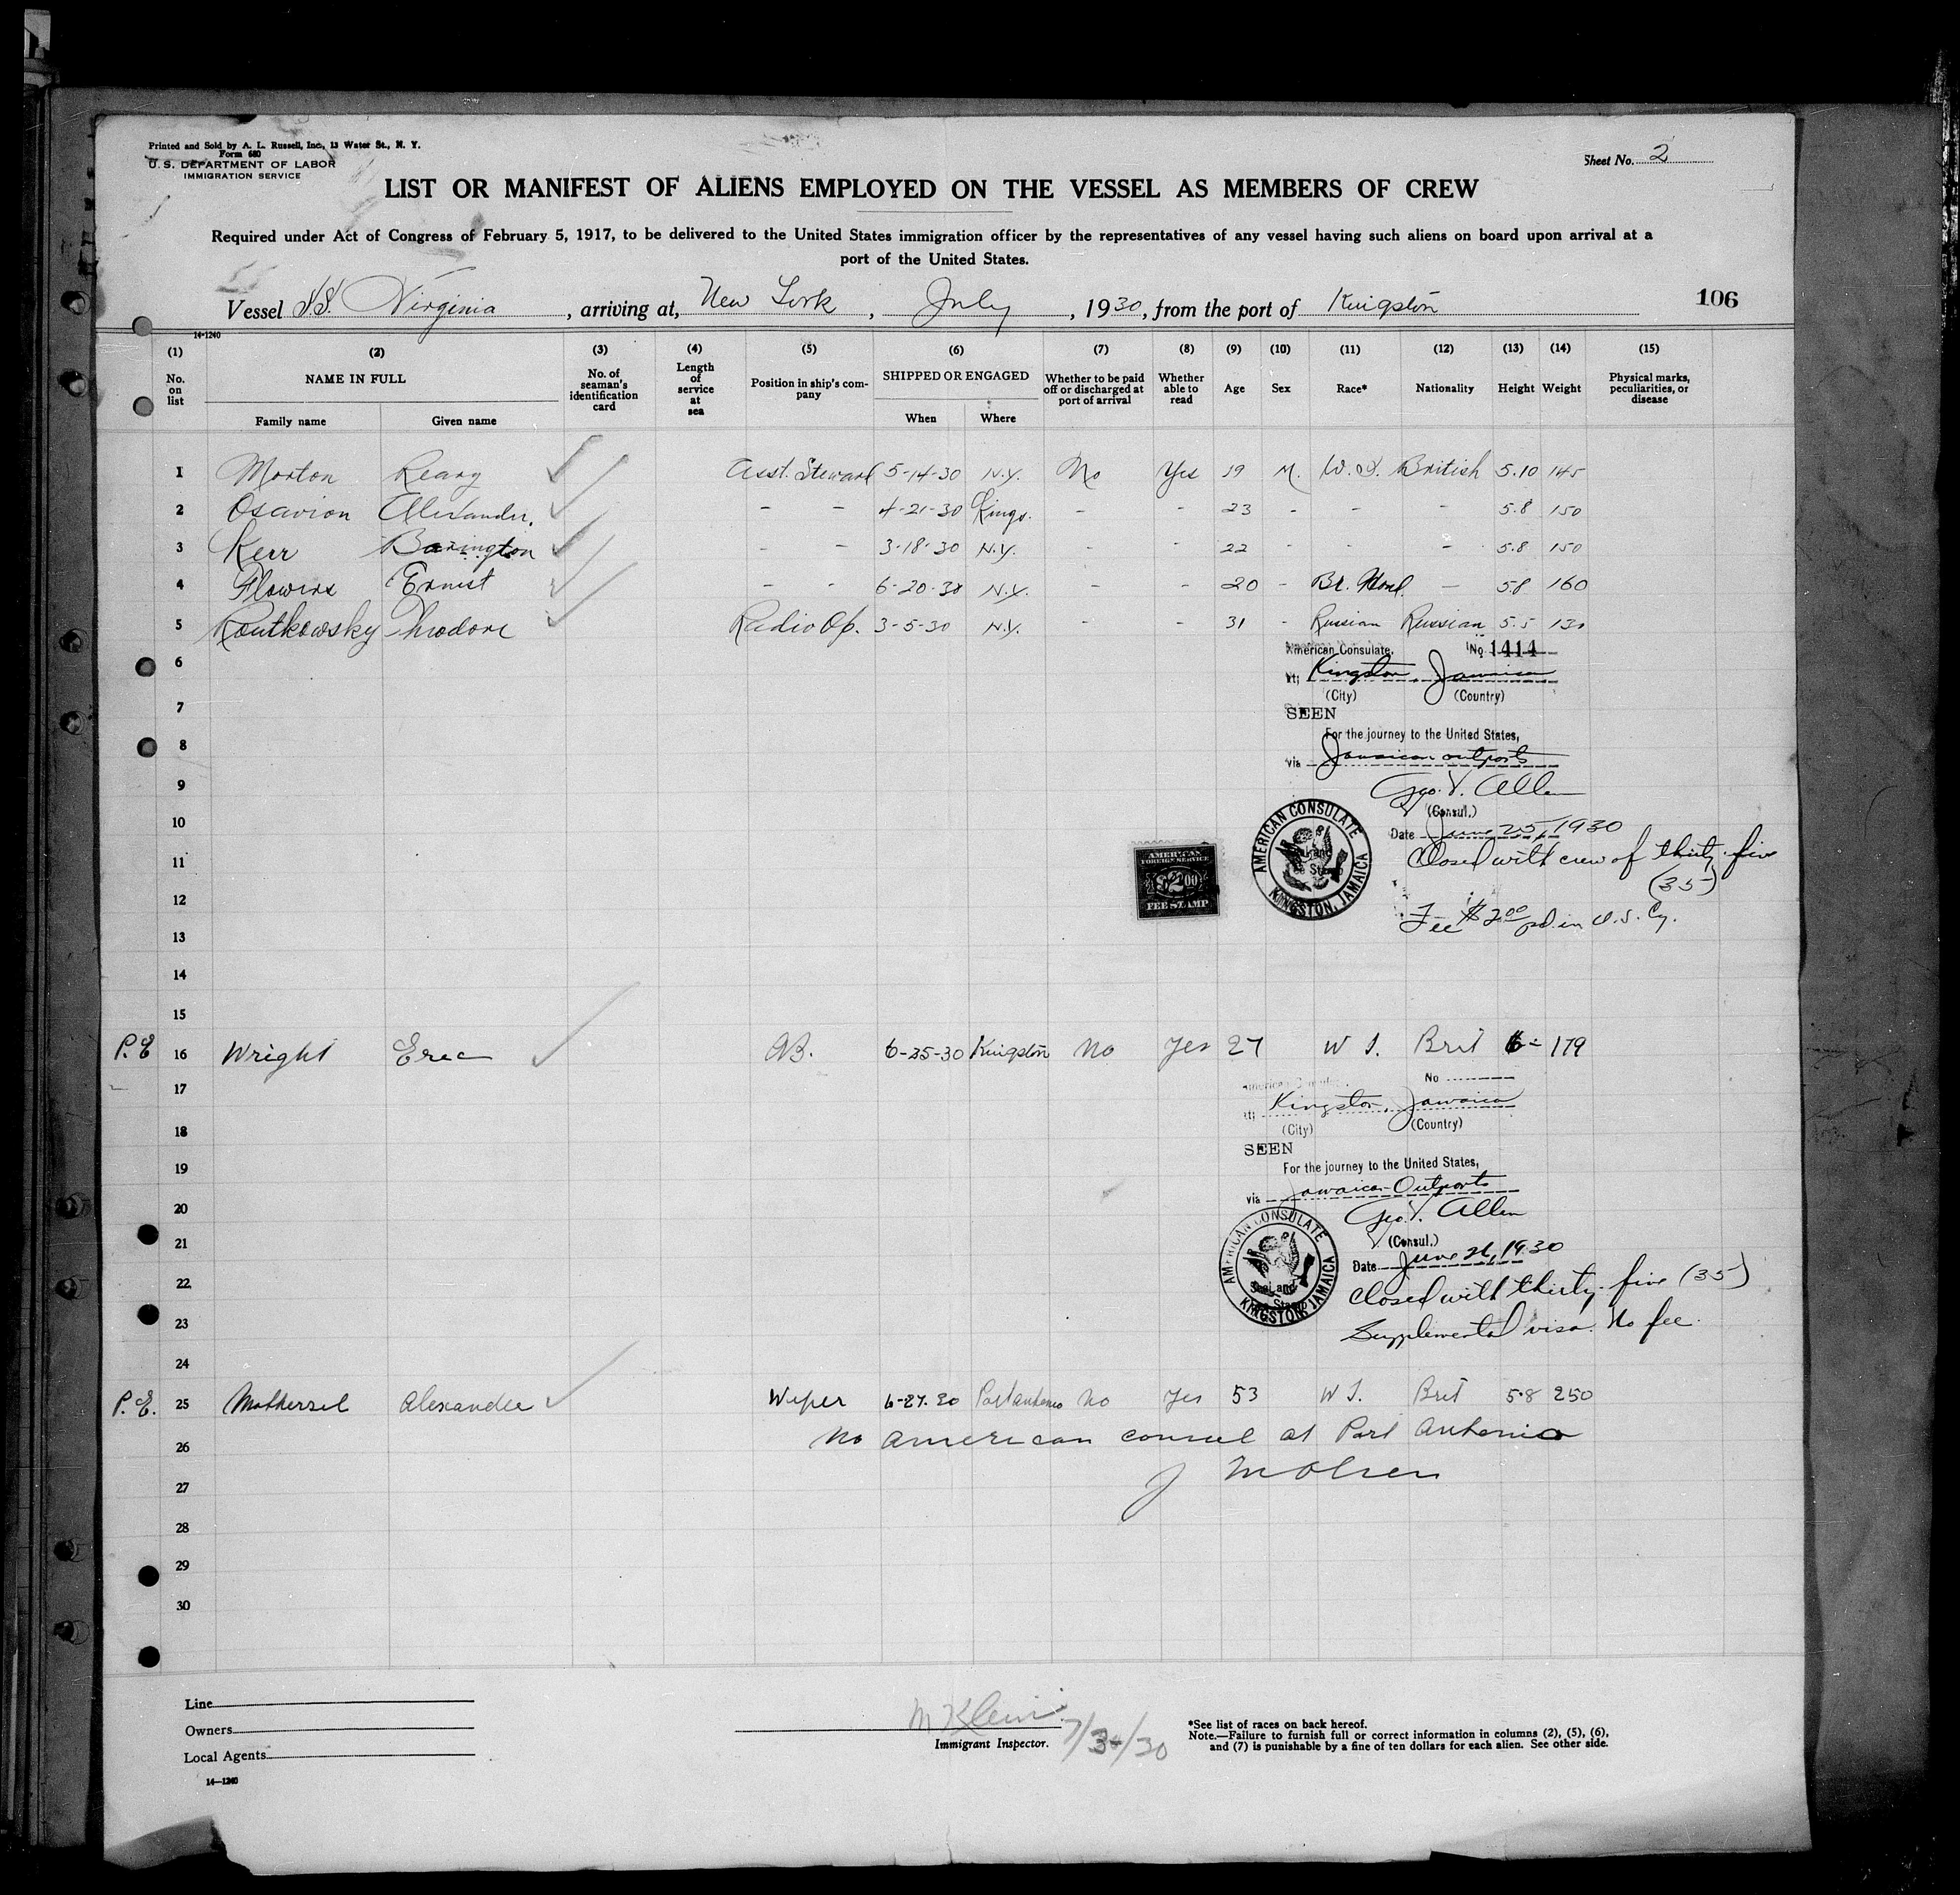 Printed and Sold by A. L. Russell, Inc., 13 Water St., N. Y.
Form 680
U. S. DEPARTMENT OF LABOR
IMMIGRATION SERVICE
Sheet No. 2
LIST OR MANIFEST OF ALIENS EMPLOYED ON THE VESSEL AS MEMBERS OF CREW
Required under Act of Congress of February 5, 1917, to be delivered to the United States immigration officer by the representatives of any vessel having such aliens on board upon arrival at a
port of the United States.
Vessel S.S. Virginia, arriving at, New York, July, 1930, from the port of Kingston
106
14-1240
(1) (2) (3) (4) (5) (6) (7) (8) (9) (10) (11) (12) (13) (14) (15)
No. on list NAME IN FULL No. of seaman's identification card Length of service at sea Position in ship's company SHIPPED OR ENGAGED Whether to be paid off or discharged at port of arrival Whether able to read Age Sex Race* Nationality Height Weight Physical marks, peculiarities, or disease
Family name Given name When Where
1 Morton ✓ Asst. Steward 5-14-30 N.Y. No Yes 19 M. W.I. British 5.10 145
2 Osavion Allexander, ✓ - - 4-21-30 Kings. - - 23 - - - 5.8 150
3 Kerr Barington ✓ - - 3-18-30 N.Y. - - 22 - - - 5.8 150
4 Flowers Ernest ✓ - - 6-20-30 N.Y. - - 20 - Br. Hond. - 5.8 160
5 Routkowsky Theodore ✓ Radio Op. 3-5-30 N.Y. - - 31 - Russian Russian 5.5 130
American Consulate, No 1414
6
at; Kingston, Jamaica
(City) (Country)
7
SEEN
For the journey to the United States,
8
via Jamaican outports
9
Geo. V. Allen
(Consul.)
10
Date June 25, 1930
AMERICAN CONSULATE
KINGSTON, JAMAICA
AMERICAN
FOREIGN SERVICE
$2.00
FEE STAMP
11
Closed with crew of thirty-five
(35)
12
Fee $2.00 pd. in U.S. Cy.
13
14
15
P.E. 16 Wright Eric ✓ AB. 6-25-30 Kingston No Yes 27 W I. Brit 6- 179
American Consulate, No
17
at; Kingston, Jamaica
18
(City) (Country)
SEEN
19
For the journey to the United States,
via Jamaican Outports
20
Geo. V. Allen
21
(Consul.)
Date June 26, 1930
AMERICAN CONSULATE
KINGSTON, JAMAICA
22
Closed with thirty-five (35)
23
Supplemental visa. No fee.
24
P.E. 25 Mothersel Alexander ✓ Wiper 6-27-30 Port Antonio No Yes 53 W I. Brit 5.8 250
26
No American consul at Port Antonio
27
J M Olsen
28
29
30
Line
Owners
Local Agents
14—1240
M Klein 7/3-/30
Immigrant Inspector.
*See list of races on back hereof.
Note.—Failure to furnish full or correct information in columns (2), (5), (6),
and (7) is punishable by a fine of ten dollars for each alien. See other side.